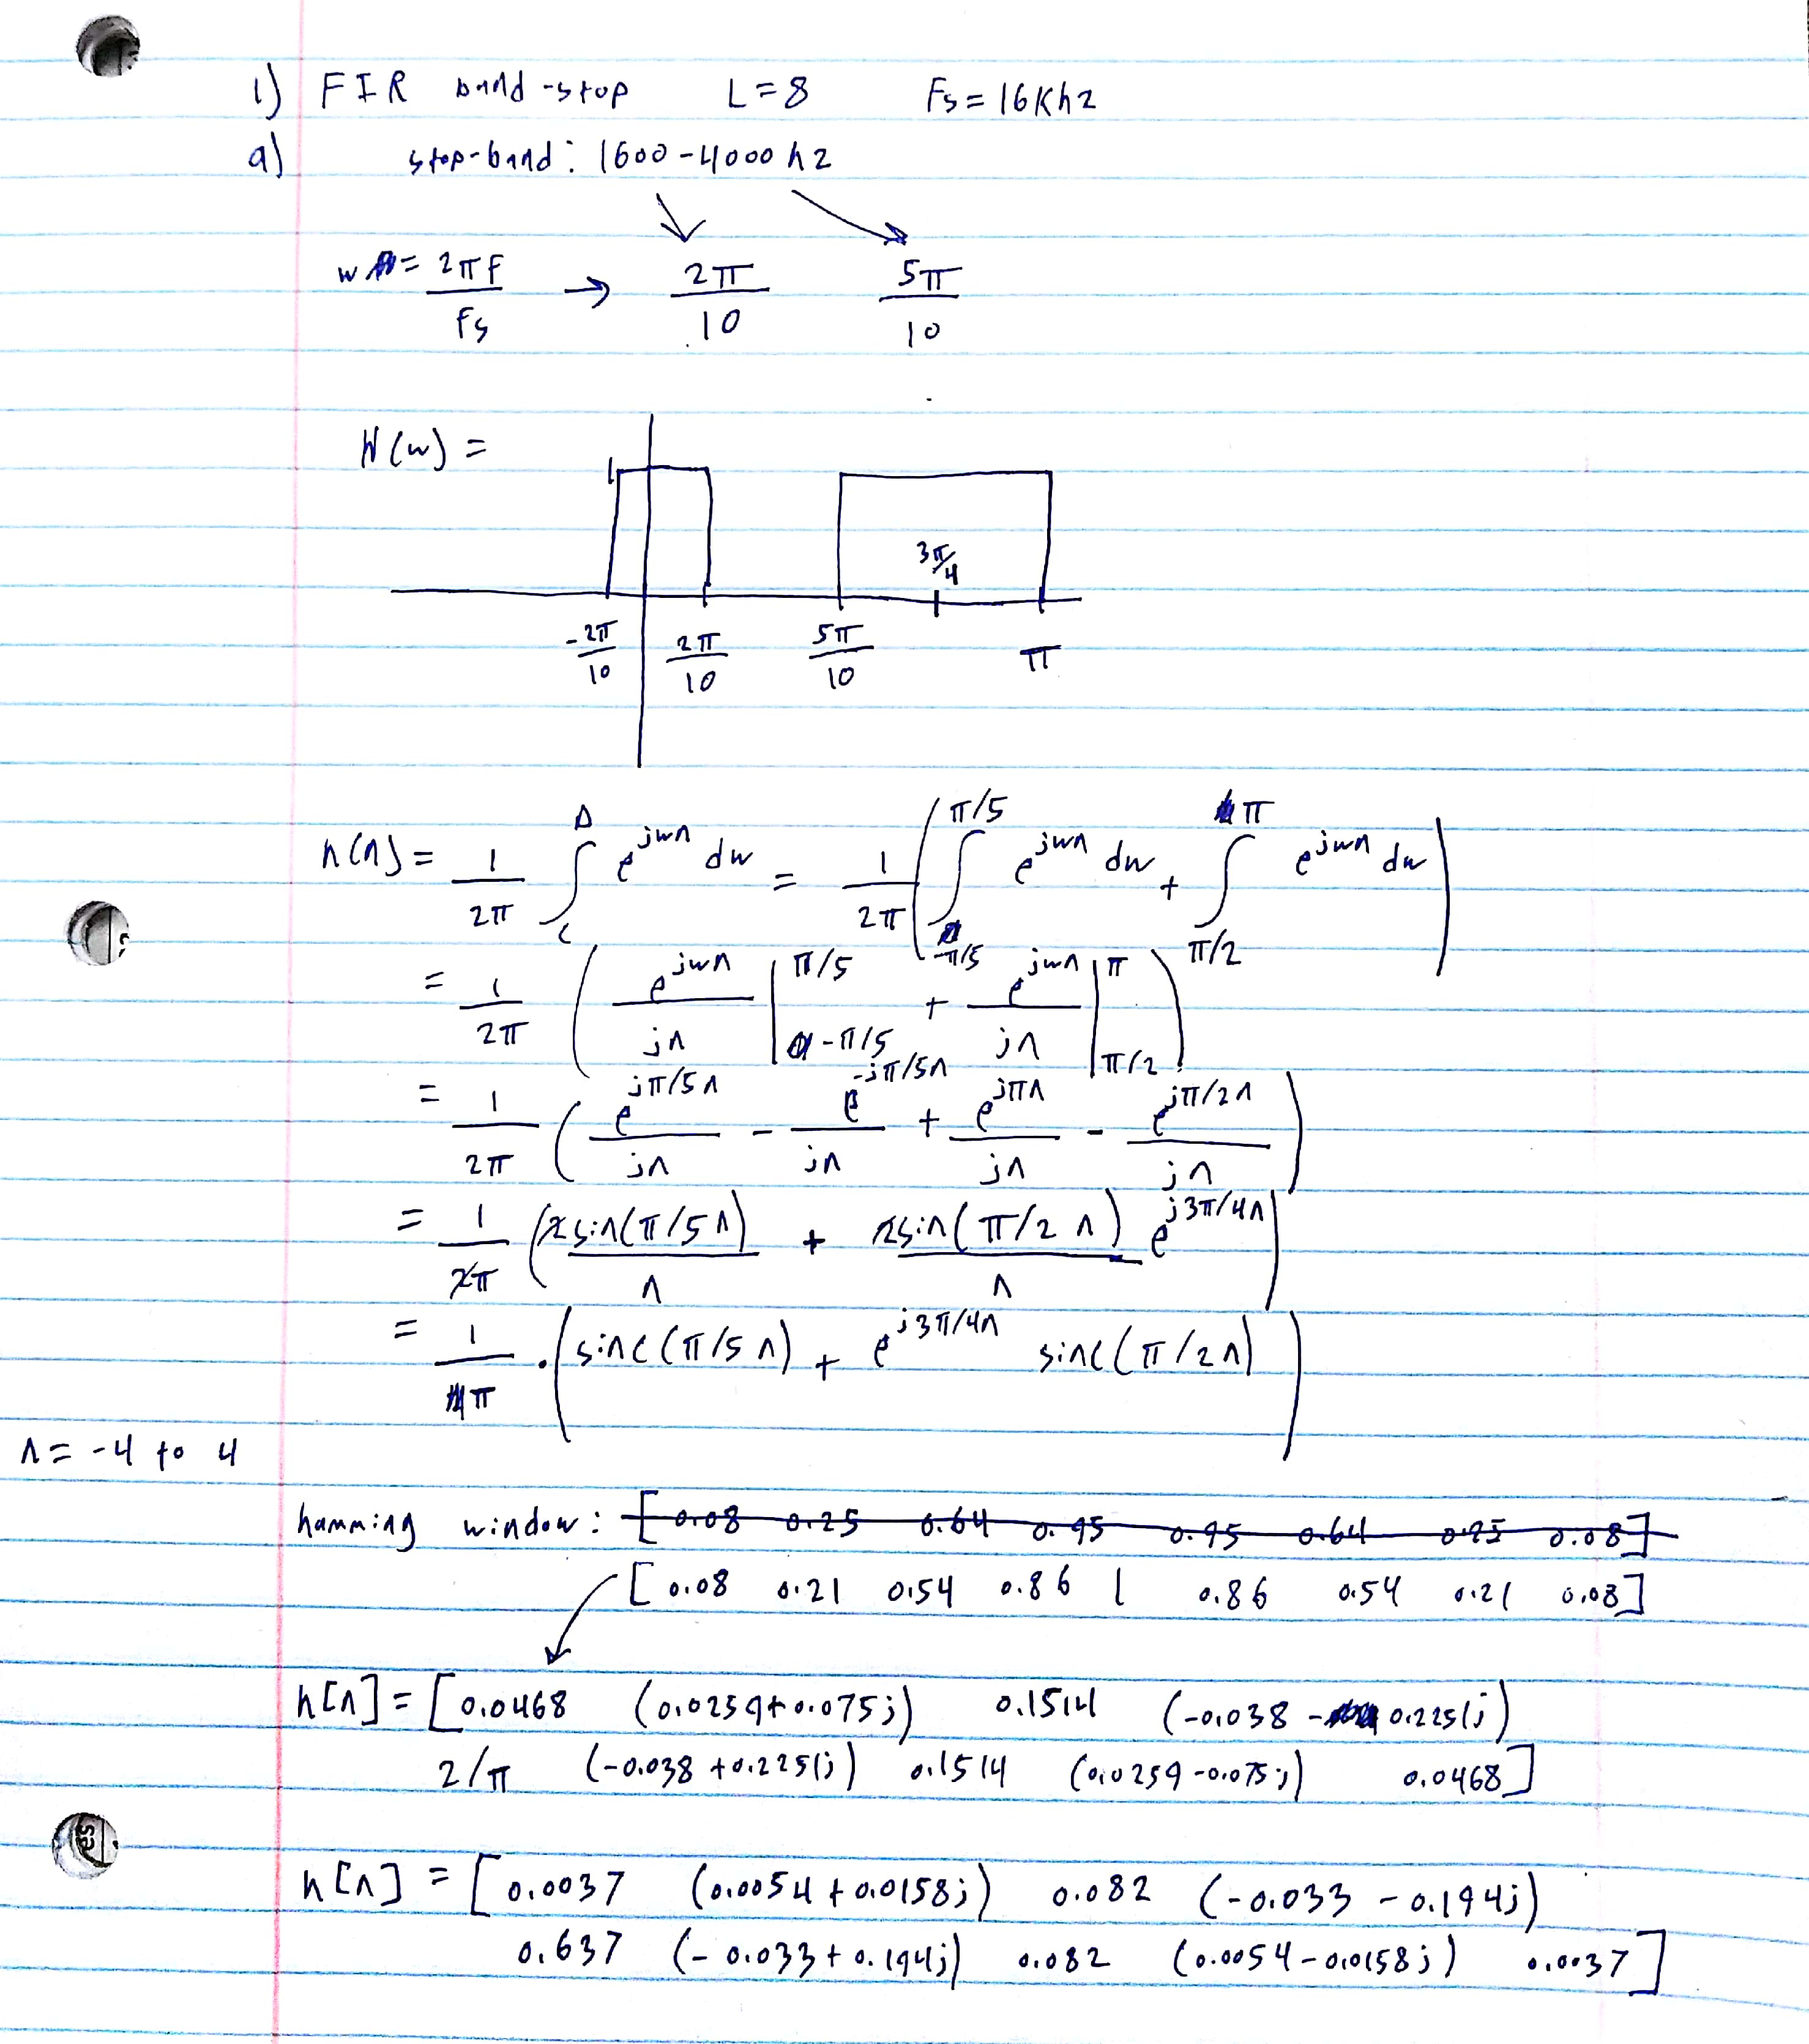 1) FIR band-stop L=8 Fs=16Khz
a) stop-band: 1600-4000hz
w = 2πf/fs → 2π/10 5π/10
H(w) =
1
3π/4
-2π/10 2π/10 5π/10 π
h(n) = 1/2π ∫ e^jwn dw = 1/2π ( ∫_{-π/5}^{π/5} e^jwn dw + ∫_{π/2}^{π} e^jwn dw )
= 1/2π ( e^jwn/jn |_{-π/5}^{π/5} + e^jwn/jn |_{π/2}^{π} )
= 1/2π ( e^jπ/5n/jn - e^-jπ/5n/jn + e^jπn/jn - e^jπ/2n/jn )
= 1/2π ( 2sin(π/5n)/n + 2sin(π/2 n)/n e^j3π/4n )
= 1/π · ( sinc(π/5 n) + e^j3π/4n sinc(π/2n) )
n = -4 to 4
hamming window: [0.08 0.25 0.64 0.95 0.95 0.64 0.25 0.08]
[0.08 0.21 0.54 0.86 1 0.86 0.54 0.21 0.08]
h[n] = [0.0468 (0.0259+0.075j) 0.1514 (-0.038 - 0.2251j)
2/π (-0.038 +0.2251j) 0.1514 (0.0259-0.075j) 0.0468]
h[n] = [0.0037 (0.0054+0.0158j) 0.082 (-0.033 - 0.194j)
0.637 (-0.033+0.194j) 0.082 (0.0054-0.0158j) 0.0037]